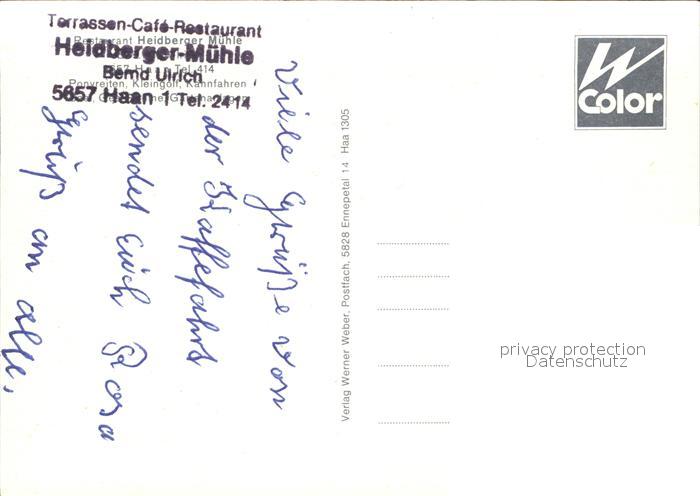 Terrassen-Café-Restaurant
Restaurant Heidberger Mühle
Heidberger-Mühle
5657 Haan Tel. 414
Bernd Ulrich
Ponyreiten, Kleingolf, Kahnfahren
5657 Haan 1 Tel. 2414
Viele Grüße von
der Kaffefahrt
sendet Euch Rosa
Gruß an alle.
Verlag Werner Weber, Postfach, 5828 Ennepetal 14 Haa 1305
W
Color
privacy protection
Datenschutz